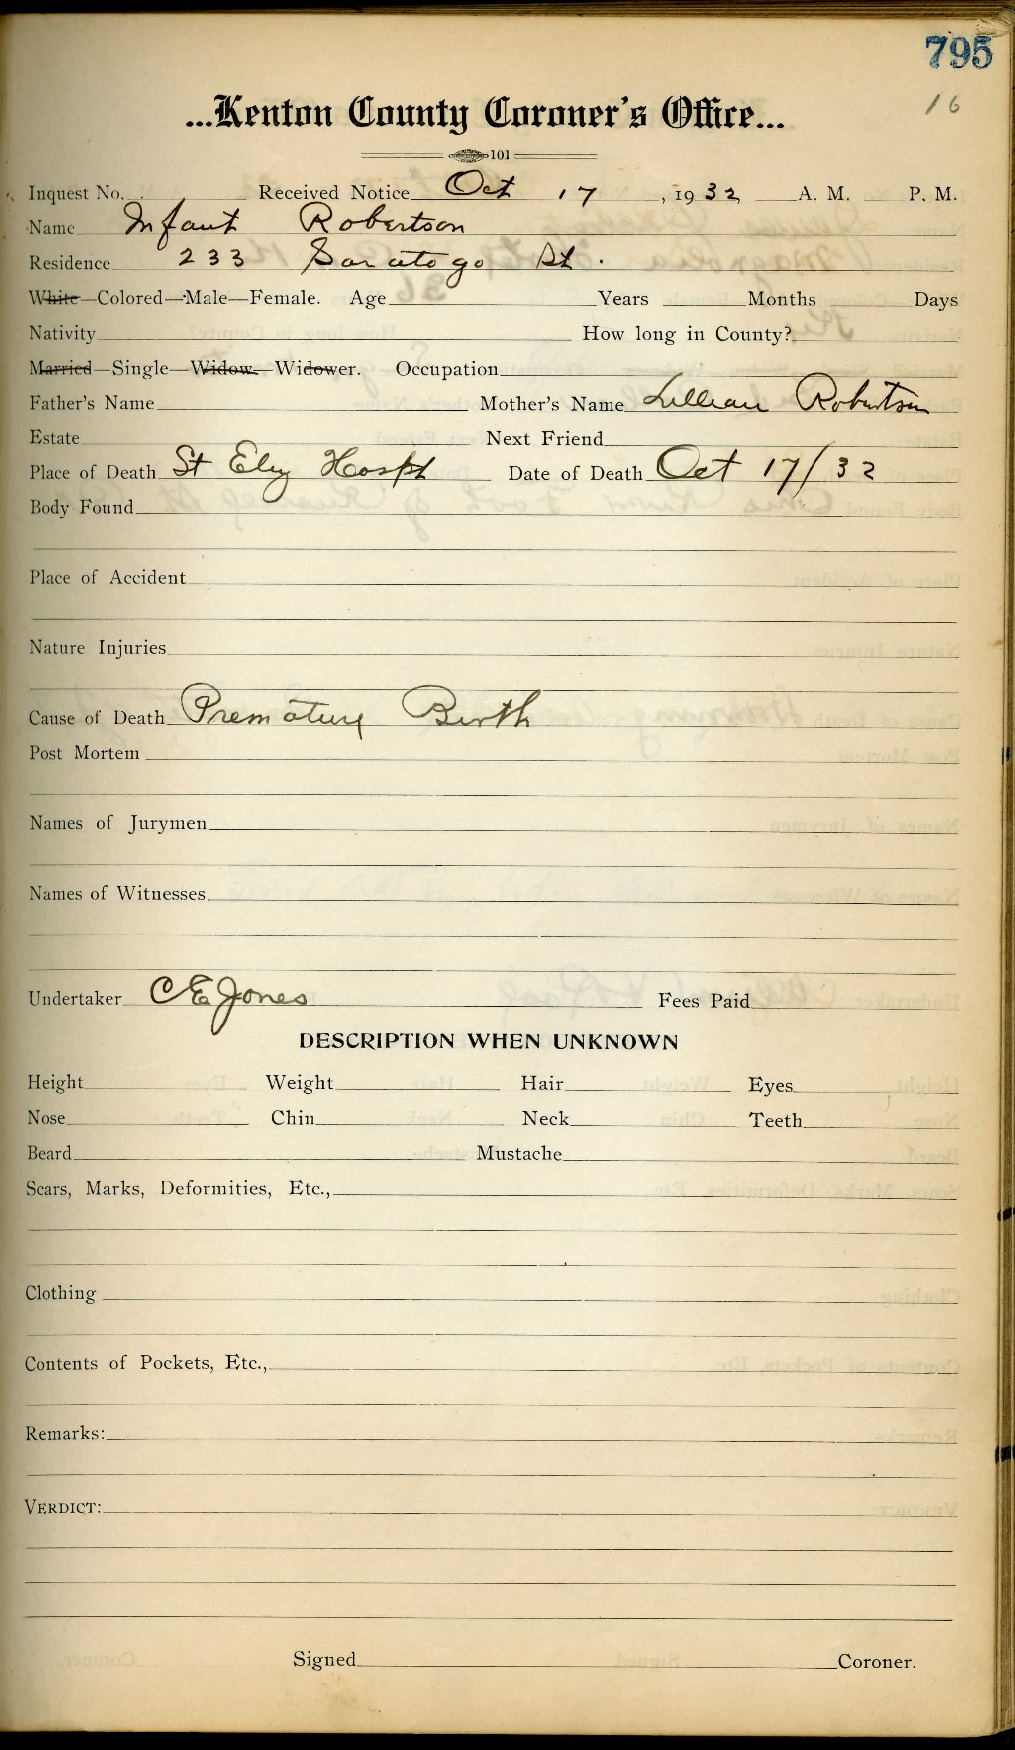 795
16
...Kenton County Coroner's Office...
101
Inquest No. Received Notice Oct 17, 1932 A. M. P. M.
Name Infant Robertson
Residence 233 Saratoga St.
White—Colored—Male—Female. Age Years Months Days
Nativity How long in County?
Married—Single—Widow—Widower. Occupation
Father's Name Mother's Name Lillian Robertson
Estate Next Friend
Place of Death St Eliz Hospt Date of Death Oct 17/32
Body Found
Place of Accident
Nature Injuries
Cause of Death Premature Birth
Post Mortem
Names of Jurymen
Names of Witnesses
Undertaker C E Jones Fees Paid
DESCRIPTION WHEN UNKNOWN
Height Weight Hair Eyes
Nose Chin Neck Teeth
Beard Mustache
Scars, Marks, Deformities, Etc.,
Clothing
Contents of Pockets, Etc.,
Remarks:
VERDICT:
Signed Coroner.